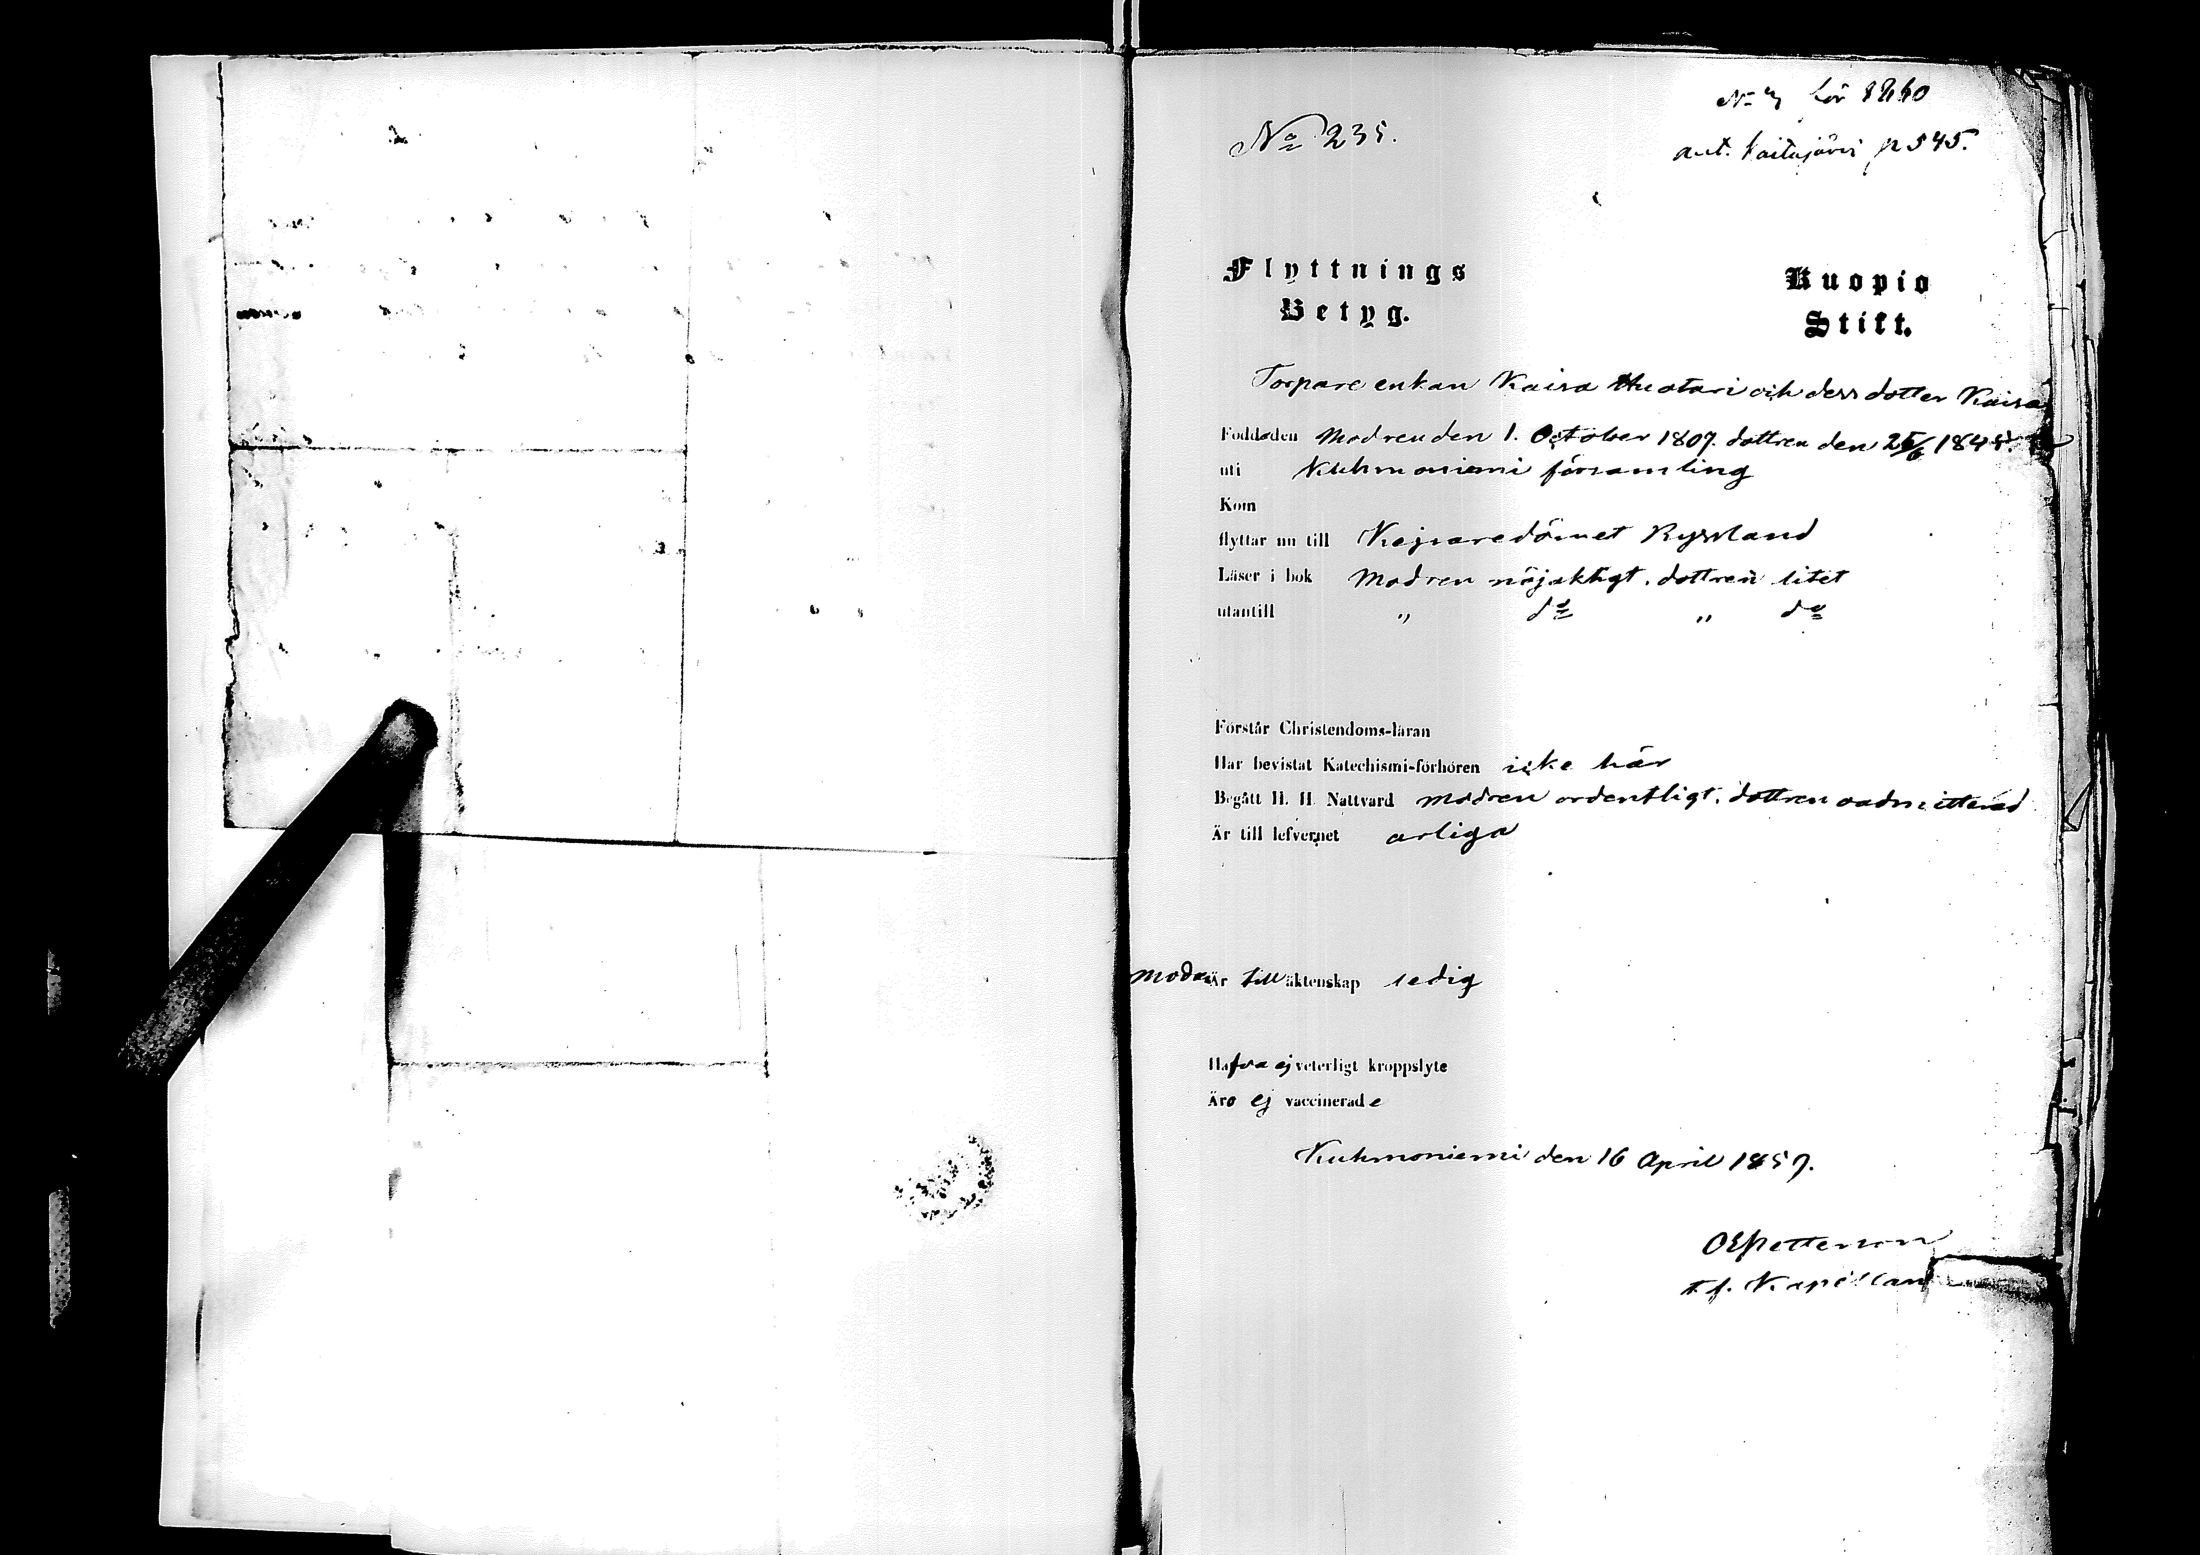 No 235.
för 1860
ant. Kaitajärvi p 545.
Flyttnings
Betyg.
Kuopio
Stift.
Torpare enkan Kaisa Huotari och dess dotter Kaisa
Född/den Modren den 1. October 1807. dottren den 25/6 1845.
uti Kuhmoniemi församling
Kom
flyttar nu till Kejsaredömet Ryssland
Läser i bok Modren nöjaktigt. dottren litet
utantill " do " do
Förstår Christendoms-läran
Har bevistat Katechismi-förhören icke här
Begått H. H. Nattvard modren ordentligt. dottren oadmitterad
Är till lefvernet ärliga
modren Är till äktenskap ledig
Hafva ej veterligt kroppslyte
Äro ej vaccinerade
Kuhmoniemi den 16 April 1857.
OEPettersson
t.f. Kapellan